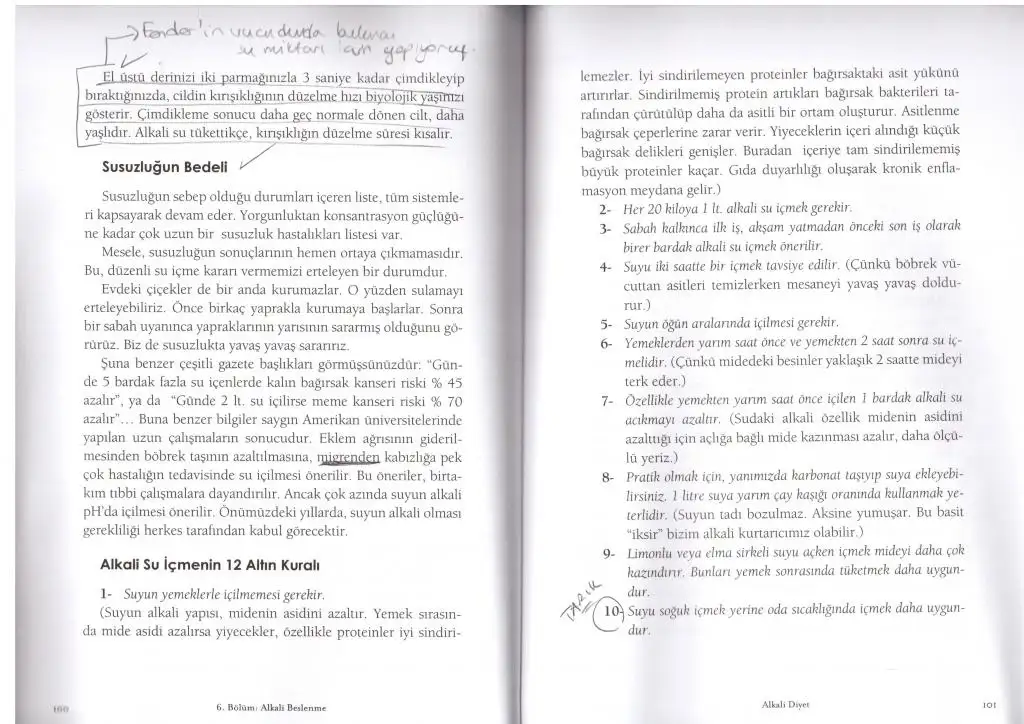 Ender'in vücudunda bulunan
su miktarı için yapıyoruz.
El üstü derinizi iki parmağınızla 3 saniye kadar çimdikleyip
bıraktığınızda, cildin kırışıklığının düzelme hızı biyolojik yaşınızı
gösterir. Çimdikleme sonucu daha geç normale dönen cilt, daha
yaşlıdır. Alkali su tükettikçe, kırışıklığın düzelme süresi kısalır.
Susuzluğun Bedeli
Susuzluğun sebep olduğu durumları içeren liste, tüm sistemle-
ri kapsayarak devam eder. Yorgunluktan konsantrasyon güçlüğü-
ne kadar çok uzun bir susuzluk hastalıkları listesi var.
Mesele, susuzluğun sonuçlarının hemen ortaya çıkmamasıdır.
Bu, düzenli su içme kararı vermemizi erteleyen bir durumdur.
Evdeki çiçekler de bir anda kurumazlar. O yüzden sulamayı
erteleyebiliriz. Önce birkaç yaprakla kurumaya başlarlar. Sonra
bir sabah uyanınca yapraklarının yarısının sararmış olduğunu gö-
rürüz. Biz de susuzlukta yavaş yavaş sararırız.
Şuna benzer çeşitli gazete başlıkları görmüşsünüzdür: “Gün-
de 5 bardak fazla su içenlerde kalın bağırsak kanseri riski % 45
azalır”, ya da “Günde 2 lt. su içilirse meme kanseri riski % 70
azalır”... Buna benzer bilgiler saygın Amerikan üniversitelerinde
yapılan uzun çalışmaların sonucudur. Eklem ağrısının gideril-
mesinden böbrek taşının azaltılmasına, migrenden kabızlığa pek
çok hastalığın tedavisinde su içilmesi önerilir. Bu öneriler, birta-
kım tıbbi çalışmalara dayandırılır. Ancak çok azında suyun alkali
pH’da içilmesi önerilir. Önümüzdeki yıllarda, suyun alkali olması
gerekliliği herkes tarafından kabul görecektir.
Alkali Su İçmenin 12 Altın Kuralı
1- Suyun yemeklerle içilmemesi gerekir.
(Suyun alkali yapısı, midenin asidini azaltır. Yemek sırasın-
da mide asidi azalırsa yiyecekler, özellikle proteinler iyi sindiri-
100
6. Bölüm: Alkali Beslenme
lemezler. İyi sindirilemeyen proteinler bağırsaktaki asit yükünü
artırırlar. Sindirilmemiş protein artıkları bağırsak bakterileri ta-
rafından çürütülüp daha da asitli bir ortam oluşturur. Asitlenme
bağırsak çeperlerine zarar verir. Yiyeceklerin içeri alındığı küçük
bağırsak delikleri genişler. Buradan içeriye tam sindirilememiş
büyük proteinler kaçar. Gıda duyarlılığı oluşarak kronik enfla-
masyon meydana gelir.)
2- Her 20 kiloya 1 lt. alkali su içmek gerekir.
3- Sabah kalkınca ilk iş, akşam yatmadan önceki son iş olarak
birer bardak alkali su içmek önerilir.
4- Suyu iki saatte bir içmek tavsiye edilir. (Çünkü böbrek vü-
cuttan asitleri temizlerken mesaneyi yavaş yavaş doldu-
rur.)
5- Suyun öğün aralarında içilmesi gerekir.
6- Yemeklerden yarım saat önce ve yemekten 2 saat sonra su iç-
melidir. (Çünkü midedeki besinler yaklaşık 2 saatte mideyi
terk eder.)
7- Özellikle yemekten yarım saat önce içilen 1 bardak alkali su
acıkmayı azaltır. (Sudaki alkali özellik midenin asidini
azalttığı için açlığa bağlı mide kazınması azalır, daha ölçü-
lü yeriz.)
8- Pratik olmak için, yanımızda karbonat taşıyıp suya ekleyebi-
lirsiniz. 1 litre suya yarım çay kaşığı oranında kullanmak ye-
terlidir. (Suyun tadı bozulmaz. Aksine yumuşar. Bu basit
“iksir” bizim alkali kurtarıcımız olabilir.)
9- Limonlu veya elma sirkeli suyu açken içmek mideyi daha çok
kazındırır. Bunları yemek sonrasında tüketmek daha uygun-
dur.
TARIK
10- Suyu soğuk içmek yerine oda sıcaklığında içmek daha uygun-
dur.
Alkali Diyet
101